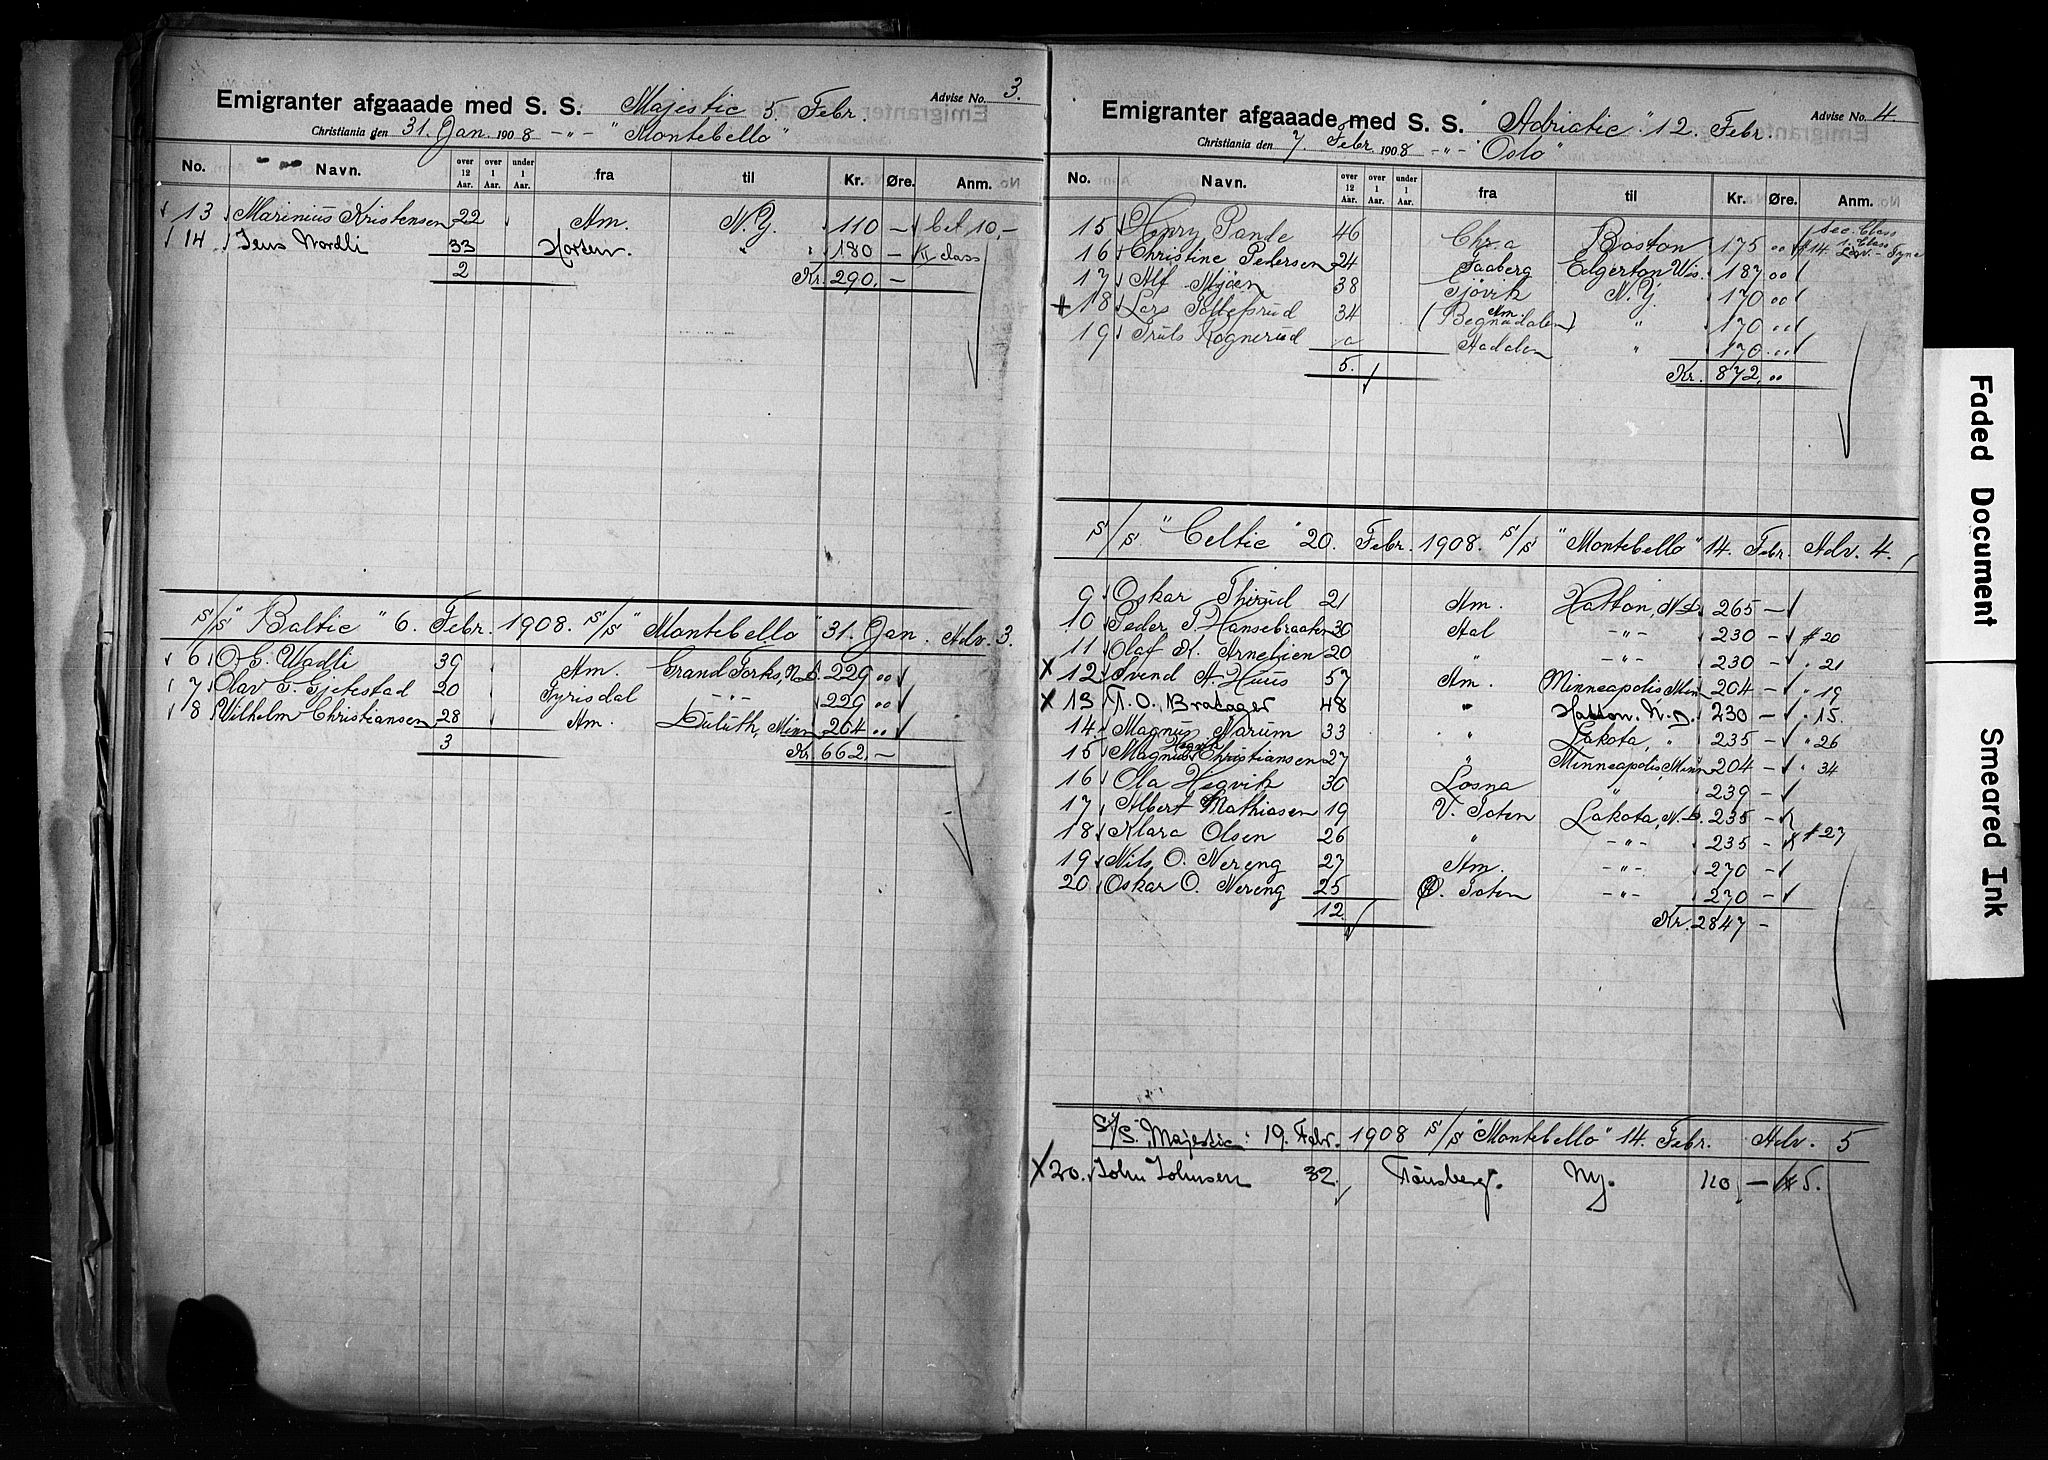 Emigranter afgaaade med S. S. Majestic 5 Febr. Advise No. 3.
Christiania den 31. Jan. 1908 -"- "Montebello"
No. Navn. over 12 Aar. over 1 Aar. under 1 Aar. fra til Kr. Øre. Anm.
13 Marinius Kristensen 22 Am. N.Y. 110 - bet 10,-
14 Jens Nordli 33 Horten. " 180 - II class
2 Kr. 290. -
S/S "Baltic" 6. Febr. 1908. S/S "Montebello" 31. Jan. Adv. 3.
6 O. G. Wadli 39 Am. Grand Forks, N.D. 229 "
7 Olav G. Gjetestad 20 Fyrisdal -"- 229 "
8 Vilhelm Christiansen 28 Am. Duluth, Minn 204 "
3 Kr. 662, -
Emigranter afgaaade med S. S. "Adriatic" 12. Febr. Advise No. 4.
Christiania den 7. Febr. 1908 -"- "Oslo"
No. Navn. over 12 Aar. over 1 Aar. under 1 Aar. fra til Kr. Øre. Anm.
15 Henry Pande 46 Chr.a Boston 175 " Sec. Class
16 Christine Pedersen 24 Faaberg Edgerton Wis. 187 " #14. 1. Class - Tyne
17 Alf Mjöen 38 Gjövik N.Y. 170 "
+ 18 Lars Tollefsrud 34 (Begnadalen) Am. " 170 "
19 Truls Rognerud Aadalen " 170 "
5. Kr. 872, "
S/S "Celtic" 20. Febr. 1908. S/S "Montebello" 14. Febr. Adv. 4.
9 Oskar Thirud 21 Am. Hatton, N.D. 265 -
10 Peder P. Hansebraaten 30 Aal -"- 230 - #20
11 Olaf K. Arnegien 20 " -"- 230 - " 21
X 12 Svend A. Huus 57 Am. Minneapolis Minn 204 - " 19
X 13 T. O. Bratager 48 " Hatton. N. D. 230 - " 15.
14 Magnus Narum 33 " Lakota, " 235 - " 26
Hegvik
15 Magnus Christiansen 27 " Minneapolis, Minn 204 - " 34
16 Ola Hegvik 30 Losna " 239 -
17 Albert Mathiasen 19 V. Toten Lakota, N.D. 235 -
18 Klara Olsen 26 " -"- 235 - #27
19 Nils O. Nereng 27 Am. -"- 270 -
20 Oskar O. Nereng 25 Ø. Toten -"- 270 -
12 Kr. 2847 -
S/S. "Majestic" 19. Febr. 1908 S/S "Montebello" 14. Febr. Adv. 5
X 20. John Johnsen 32 Tönsberg. Ny. 110 - # 5.
Faded Document
Smeared Ink